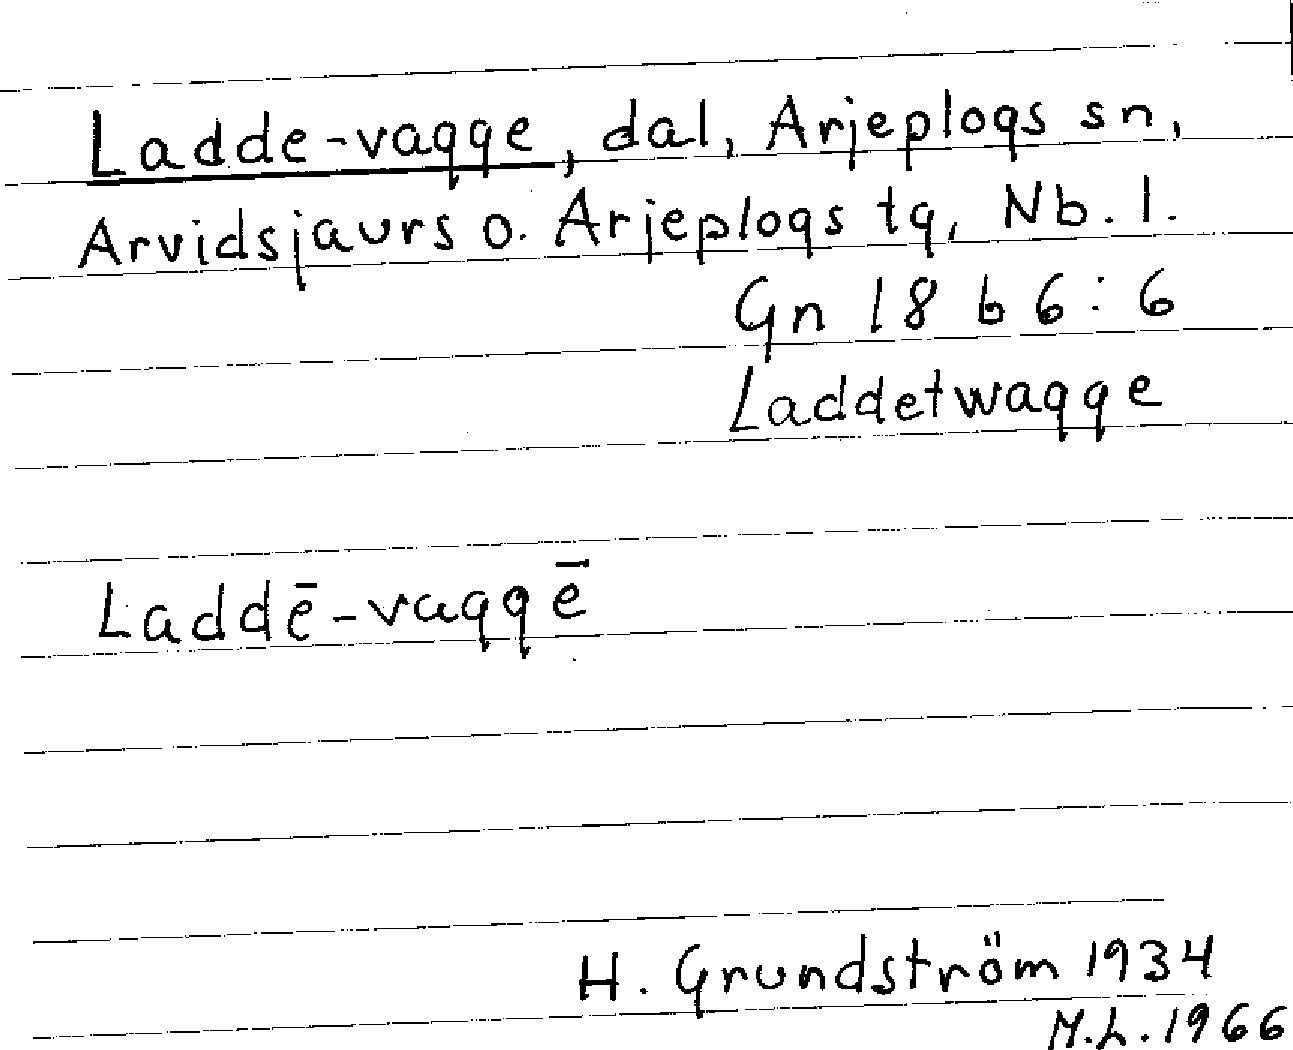 Ladde-vagge, dal, Arjeplogs sn,
Arvidsjaurs o. Arjeplogs tg, Nb. l.
Gn 18 b 6:6
Laddetwagge
Laddē-vaggē
H. Grundström 1934
M.L. 1966